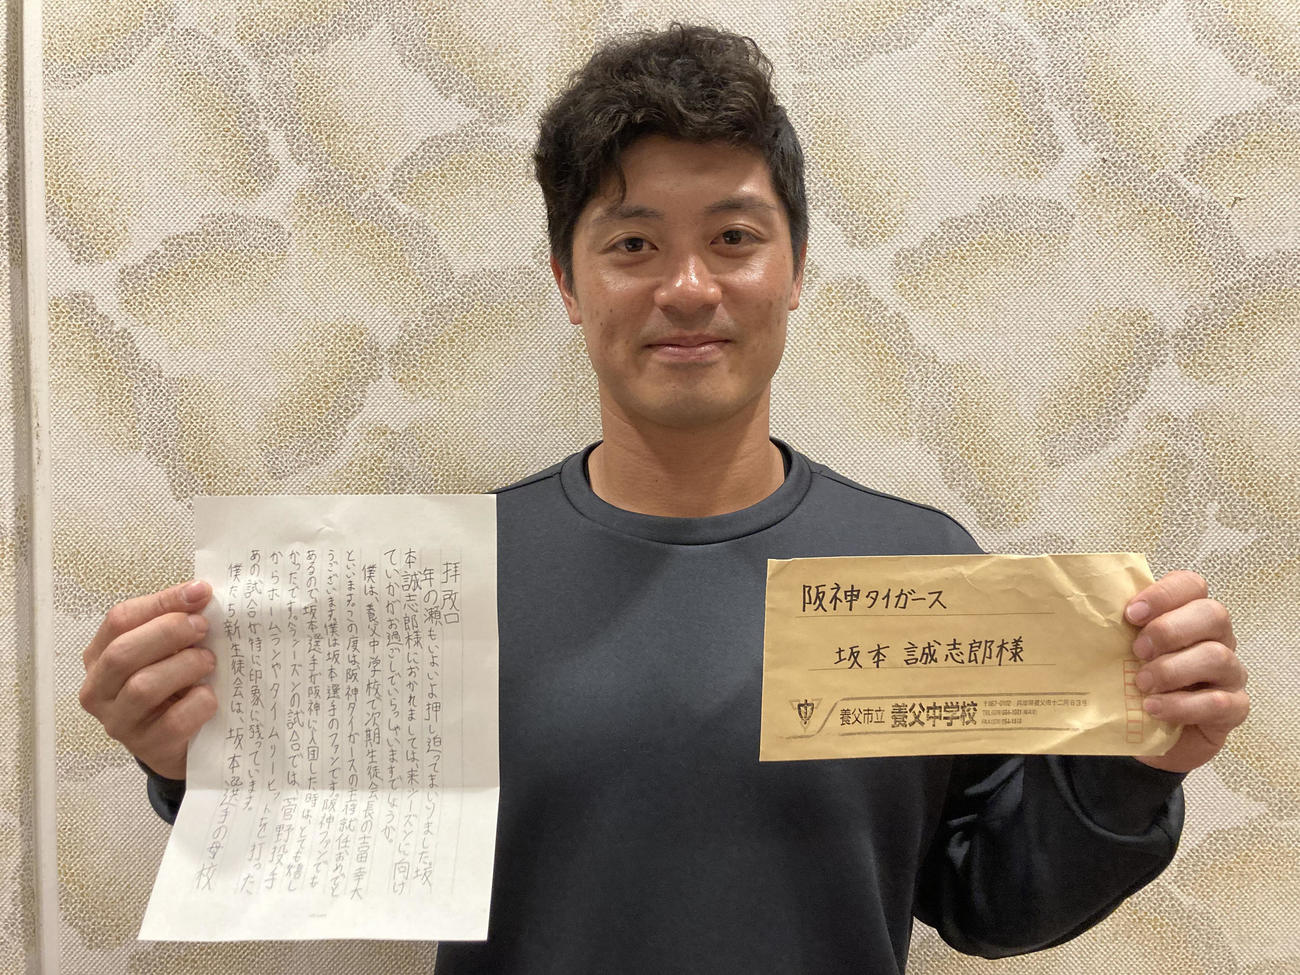 拝啓
年の瀬もいよいよ押し迫ってまいりました。坂
本誠志郎様におかれましては、来シーズンに向け
ていかがお過ごしでいらっしゃいますでしょうか。
僕は、養父中学校で次期生徒会長の吉田幸大
といいます。この度は阪神タイガースの主将就任おめでと
うございます。僕は坂本選手のファンです。阪神ファンでも
あるので、坂本選手が阪神に入団した時は、とても嬉し
かったです。今シーズンの試合では、菅野投手
からホームランやタイムリーヒットを打った
あの試合が特に印象に残っています。
僕たち新生徒会は、坂本選手の母校
阪神タイガース
坂本 誠志郎様
養父市立 養父中学校
〒667-0102 兵庫県養父市十二所893号